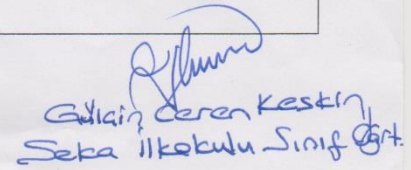 Gülçin Ceren Keskin
Seka İlkokulu Sınıf Öğrt.